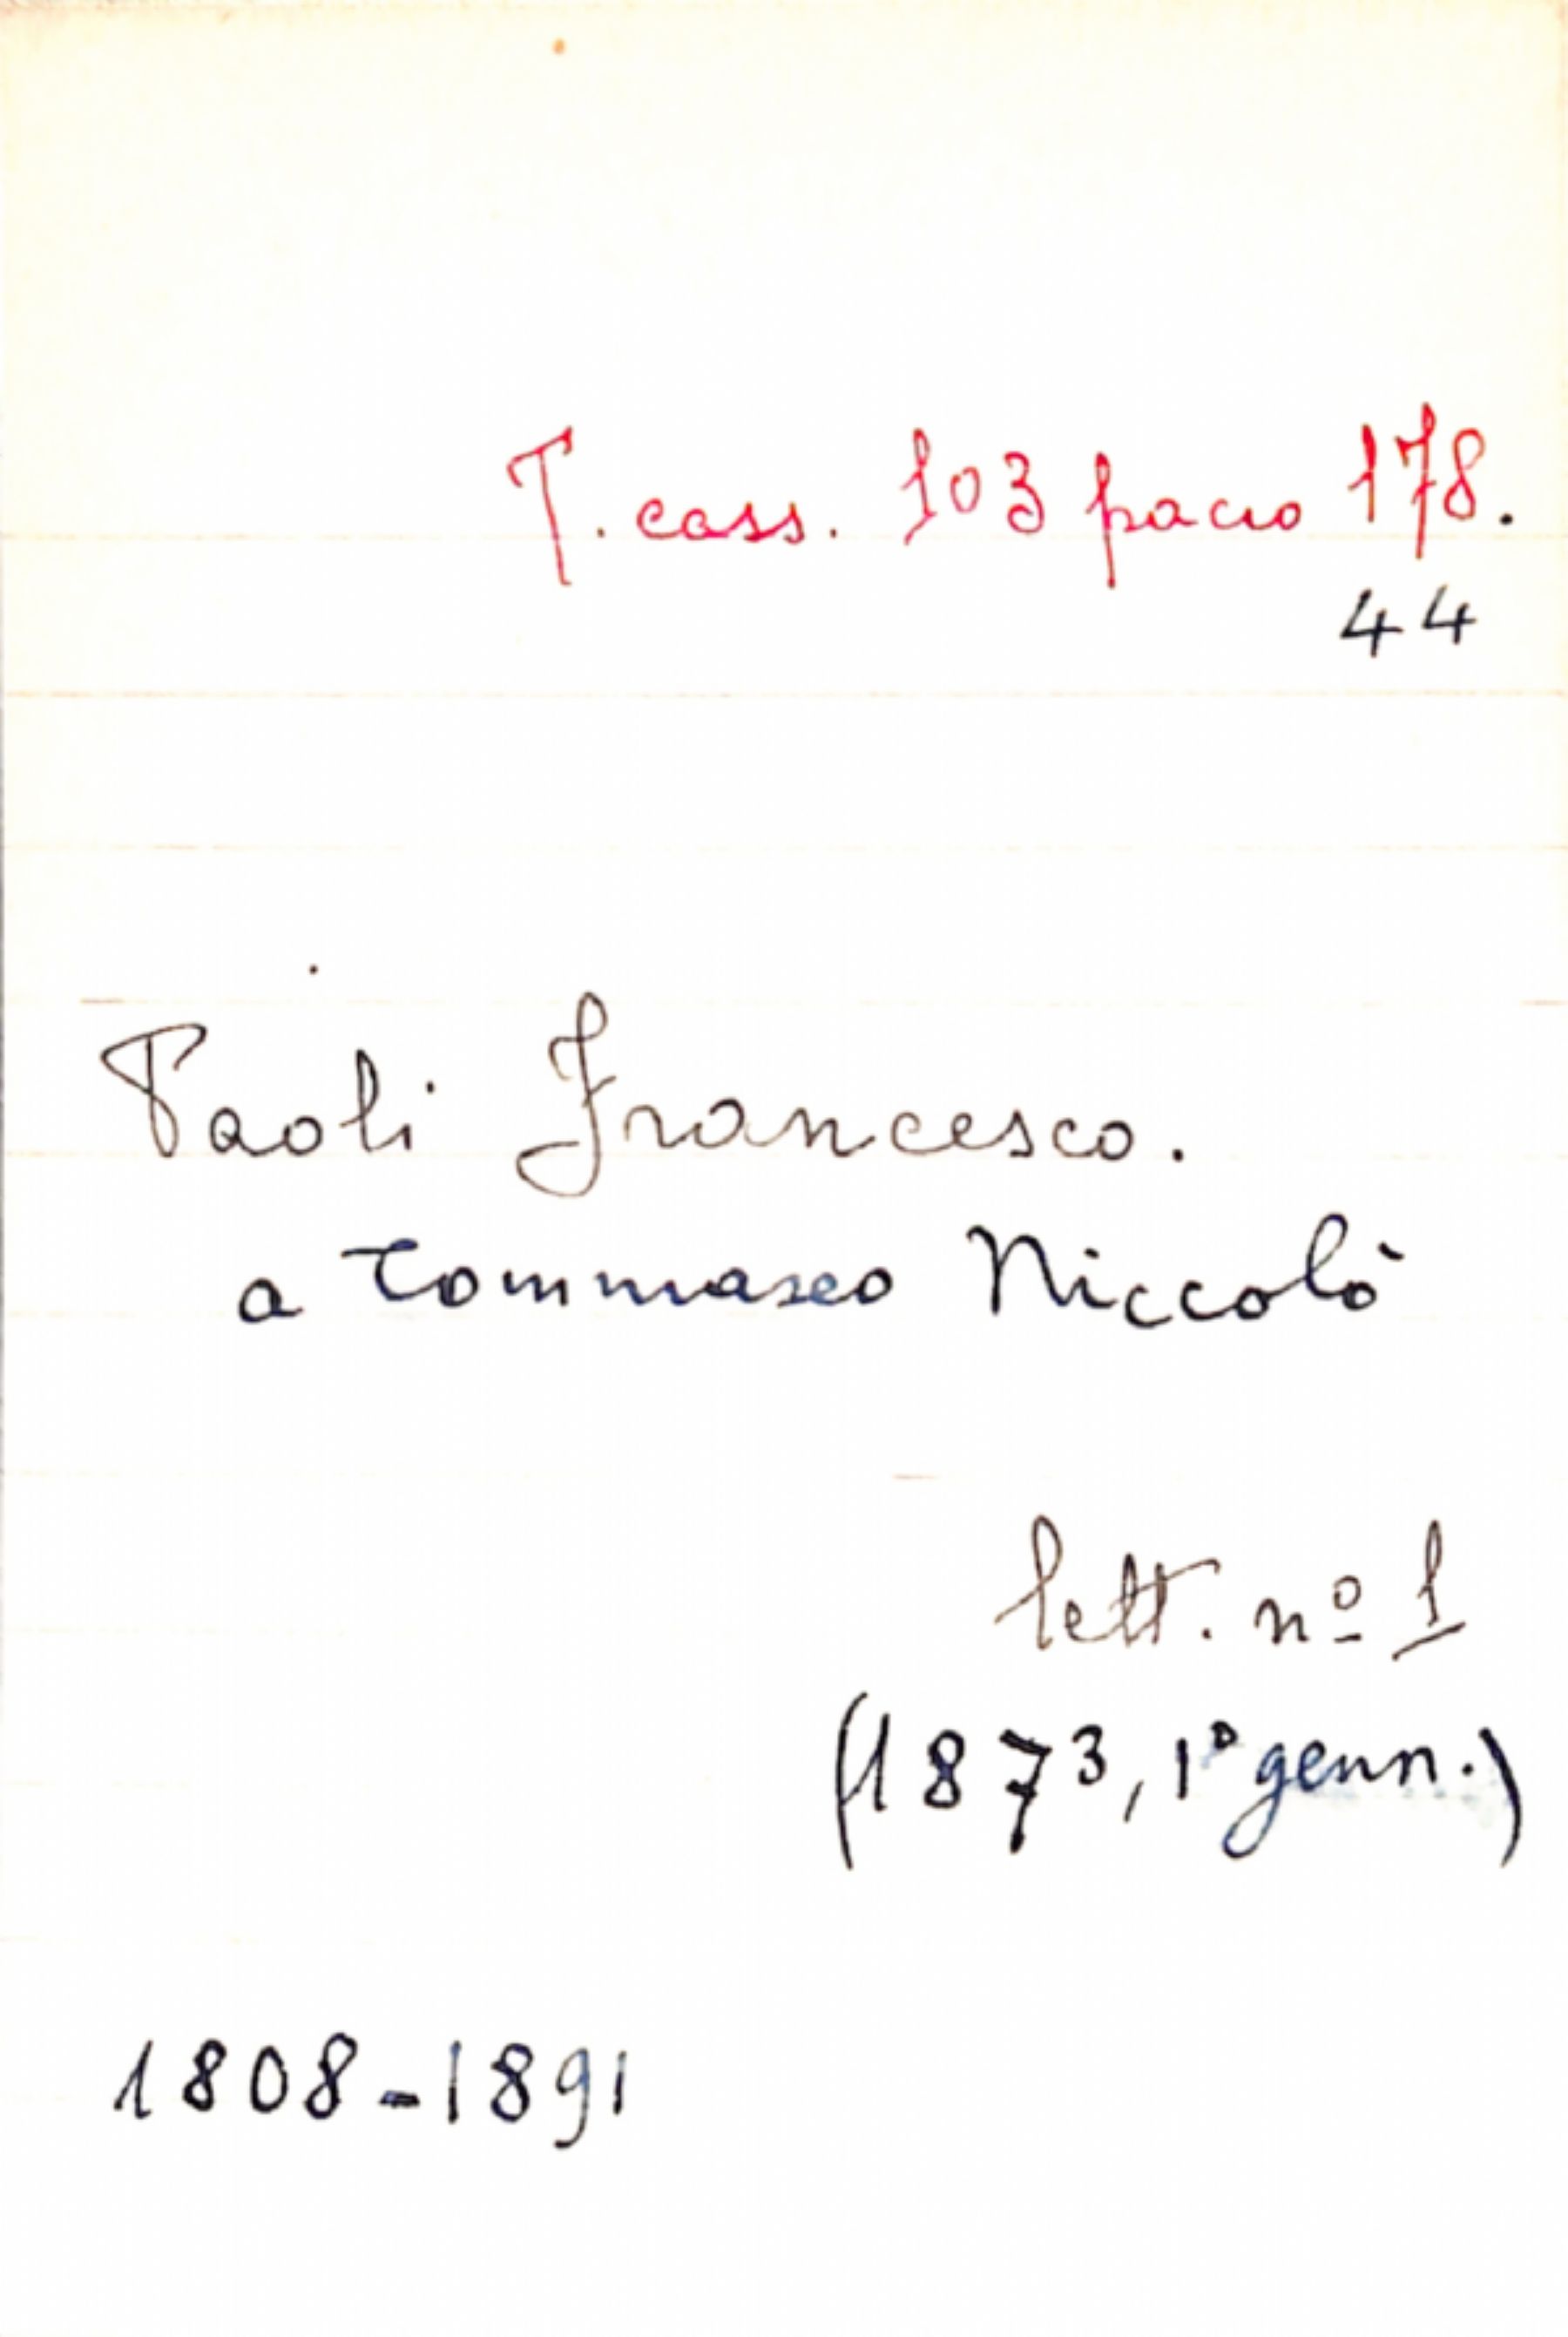 T. cass. 103 pacco 178.
44
Paoli Francesco.
a Tommaseo Niccolò
lett. nº 1
(1873, 1º genn.)
1808-1891